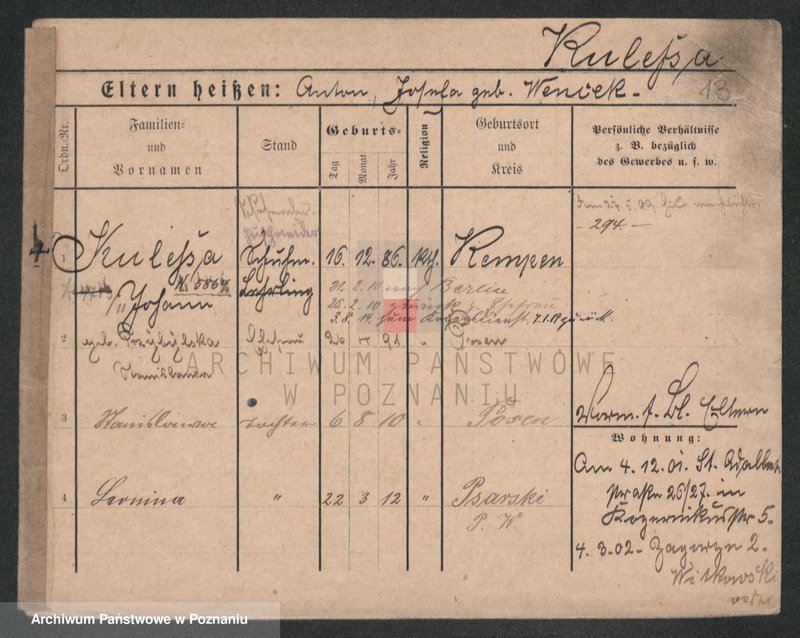 Kulessa
13
Eltern heißen: Anton, Josefa geb. Wencek.
Ordn.-Nr.
Familien-
und
Vornamen
Stand
Geburts-
Tag
Monat
Jahr
Religion
Geburtsort
und
Kreis
Persönliche Verhältnisse
z. B. bezüglich
des Gewerbes u. s. w.
294
1 Kulessa Schuhm. 16. 12. 86. kth. Kempen
Johann Lehrling
21. 2. 10 nach Berlin
26. 2. 10 zurück z. Ehefrau
3. 8. 14 zum Kriegsdienst. 7.1.19 zurück.
2 geb. Przybylska Ehefrau 26 91 " Posen
Stanislawa
ARCHIWUM PAŃSTWOWE
W POZNANIU
3 Stanislawa Tochter 6 8 10 " Posen
Vorm. s. Bl. Eltern
Wohnung:
Am 4. 12. 01. St. Adalbert
straße 26/27. im
4 Leonina " 22 3 12 " Psarski
P. W.
5.
4. 3. 02 - Zagorze 2.
Witkowski
Archiwum Państwowe w Poznaniu